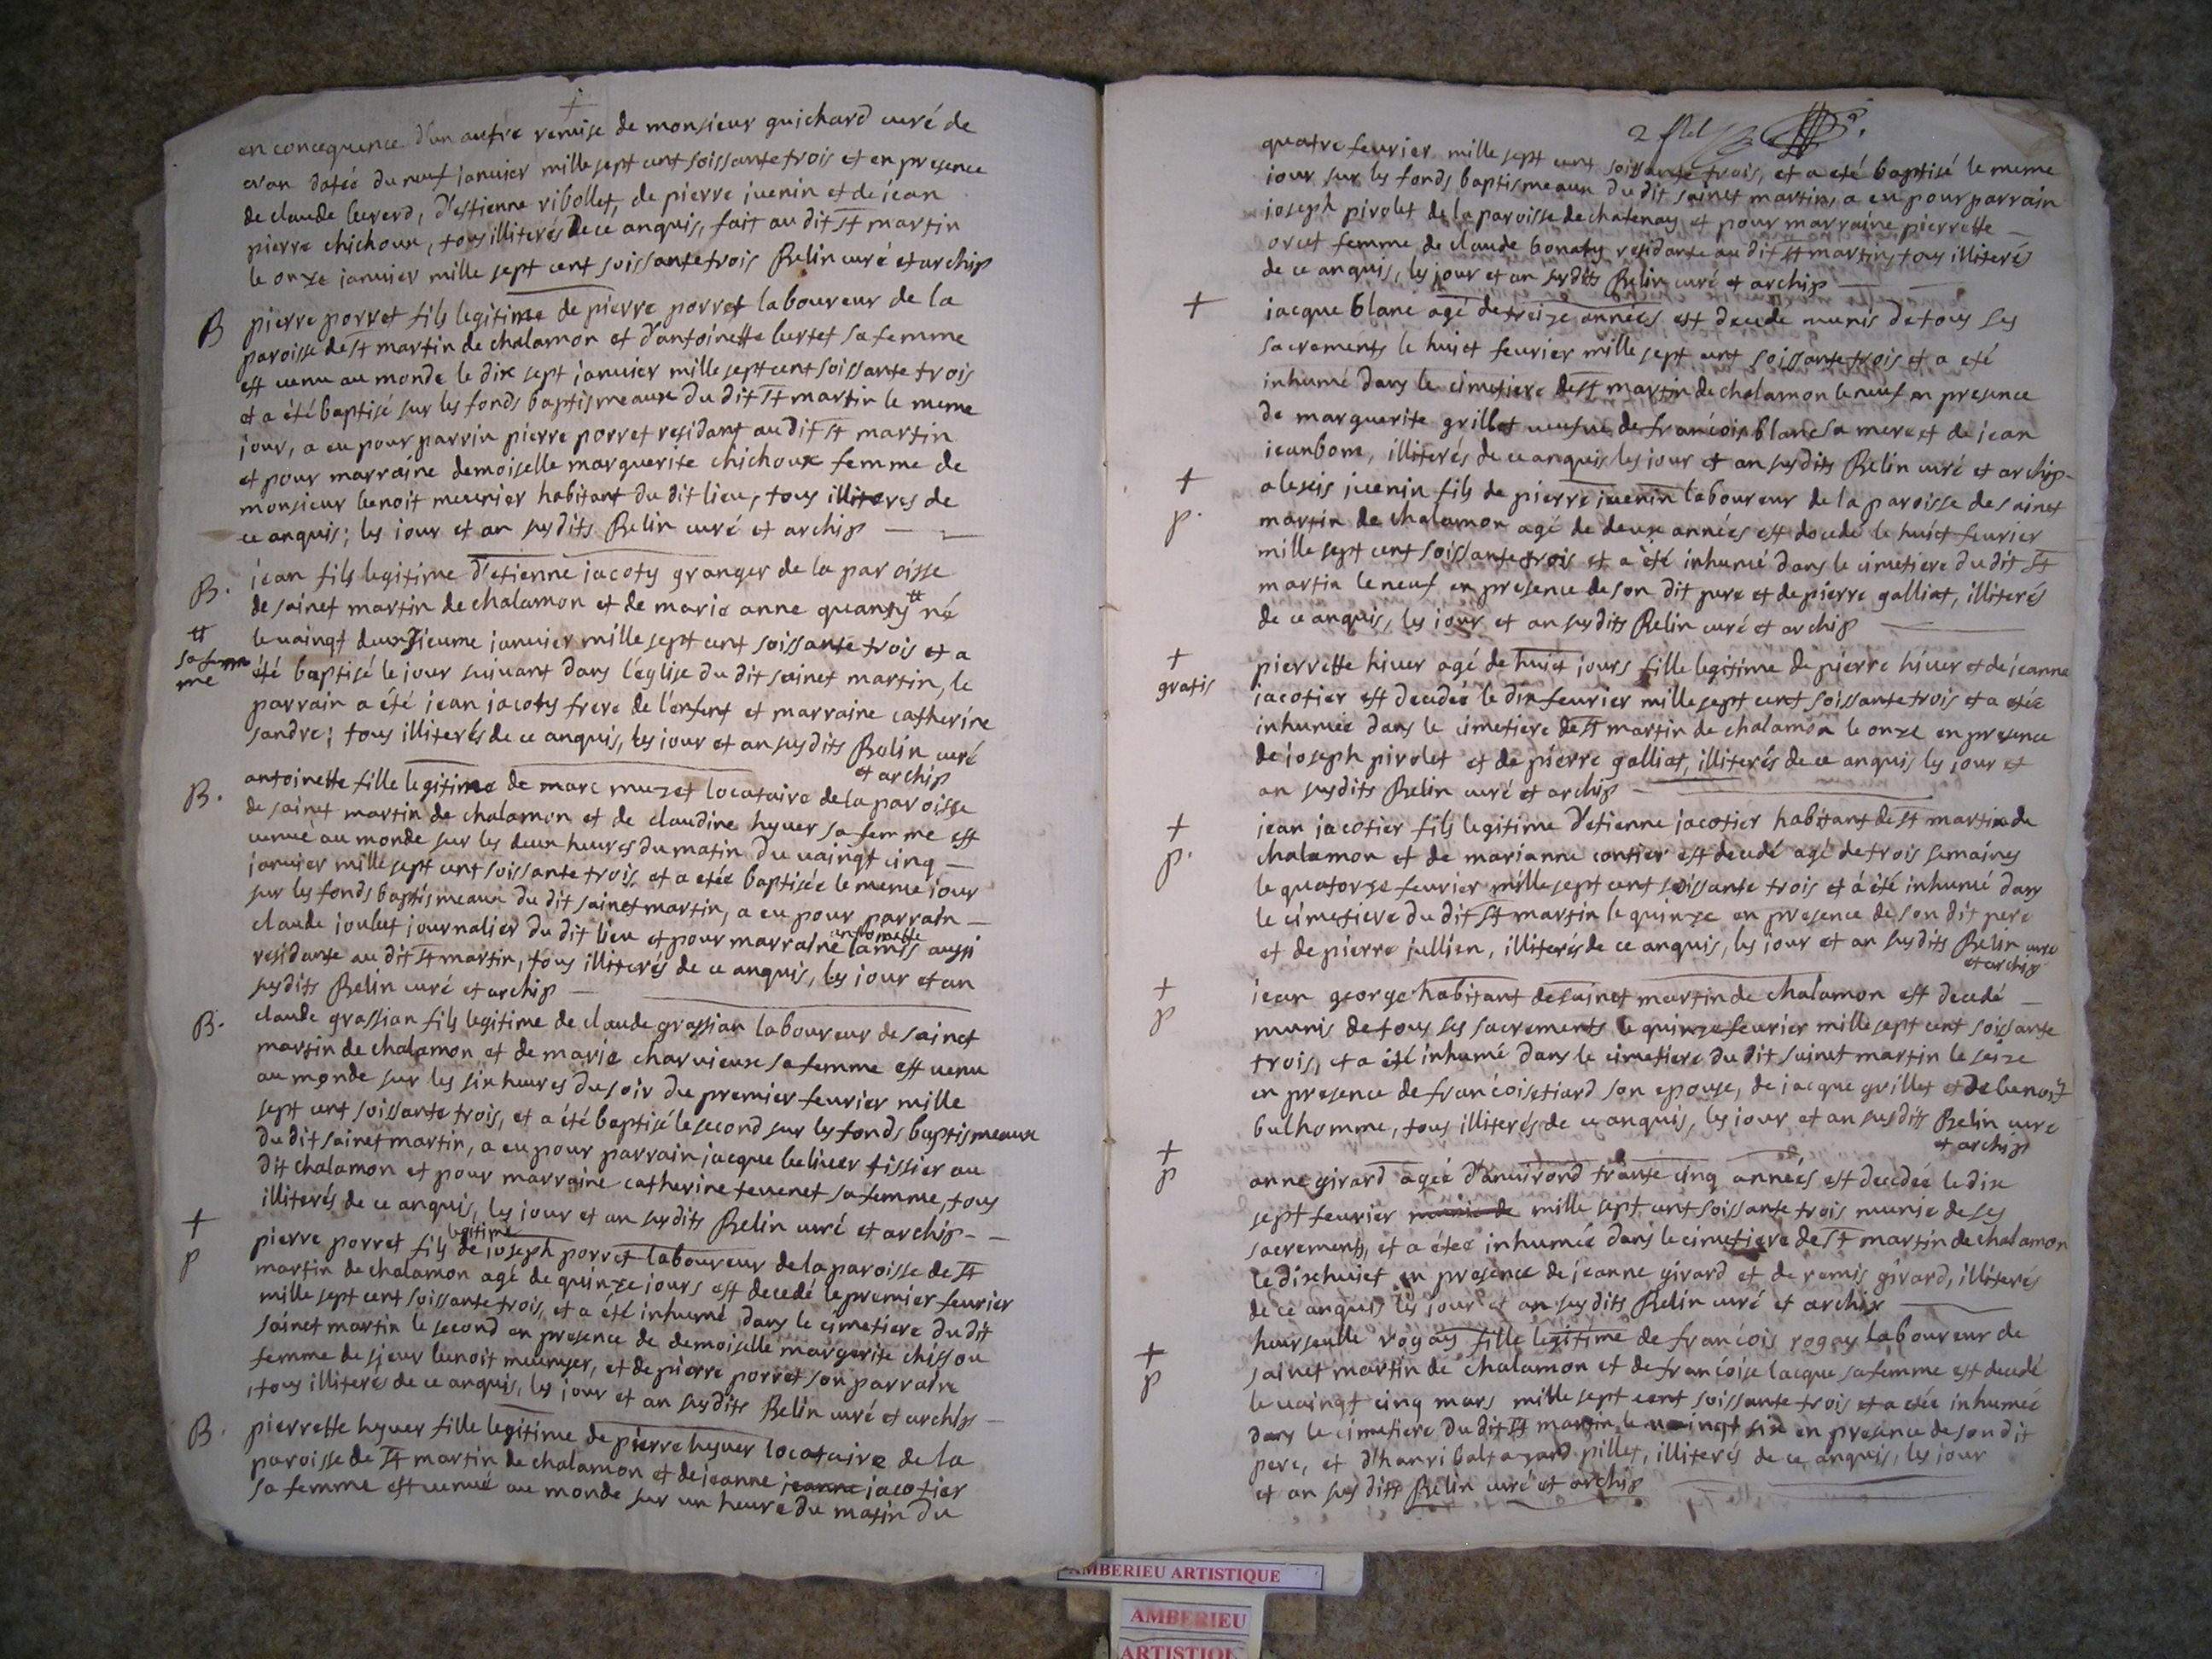 en concequence d'un autre remise de monsieur guichard curé de
cran datéé du neuf ianuier mille sept cent soissante trois et en presence
de claude beuerd, d'estienne ribollet, de pierre iuenin et de iean
pierre chichoux, tous illiterés de ce anquis, fait au dit St martin
le onze ianuier mille sept cent soissante trois Relin curé et archip
B pierre porret fils legitime de pierre porret laboureur de la
paroisse de St martin de chalamon et d'antoinette bertet sa femme
est uenu au monde le dix sept ianuier mille sept cent soissante trois
et a été baptisé sur les fonds baptismeaux du dit St martin le meme
jour, a eu pour parrin pierre porret residant au dit St martin
et pour marraine demoiselle marguerite chichoux femme de
monsieur benoit meunier habitant du dit lieu, tous illiteres de
ce anquis; les iour et an susdits Relin curé et archip
B. iean fils legitime d'etienne jacoty granger de la paroisse
de sainct martin de chalamon et de marie anne quanty # né
# sa femme
le uaingt deuxzieume ianuier mille sept cent soissante trois et a
été baptisé le jour suiuant dans l'église du dit sainct martin, le
parrain a été jean jacoty frere de l'enfent et marraine catherine
sandre; tous illiterés de ce anquis, les iour et an susdits Relin curé
et archip
B. antoinette fille legitime de marc muzet locataire de la paroisse
de sainct martin de chalamon et de claudine hyuer sa femme est
uenué au monde sur les deux heures du matin du uaingt cinq
januier mille sept cent soissante trois, et a etéé baptiséé le meme iour
sur les fonds baptismeaux du dit sainct martin, a eu pour parrain
claude ioubet journalier du dit lieu et pour marraine antoinette lamis aussi
residante au dit St martin, tous illiterés de ce anquis, les iour et an
susdits Relin curé et archip
B. claude grassian fils legitime de claude grassian laboureur de sainct
martin de chalamon et de marie charuieux sa femme est uenu
au monde sur les six heures du soir du premier feurier mille
sept cent soissante trois, et a été baptisé le second sur les fonds baptismeaux
du dit sainct martin, a eu pour parrain jacque beliuer tissier au
dit chalamon et pour marraine catherine teuenet sa femme, tous
illiterés de ce anquis, les iour et an susdits Relin curé et archip
+ p pierre porret fils legitime de ioseph porret laboureur de la paroisse de St
martin de chalamon agé de quinze iours est decedé le premier feurier
mille sept cent soissante trois, et a été inhumé dans le cimetiere du dit
sainct martin le second en presence de demoiselle margerite chissou
femme de sieur benoit meunier, et de pierre porret son parrain
, tous illiterés de ce anquis, les iour et an susdits Relin curé et archip
B. pierrette hyuer fille legitime de pierre hyuer locataire de la
paroisse de St martin de chalamon et de jeanne jeanne jacotier
sa femme est uenué au monde sur un heure du matin du
quatre feurier mille sept cent soissante trois, et a eté baptisé le meme
iour sur les fonds baptismeaux du dit sainct martin, a eu pour parrain
ioseph pirolet de la paroisse de chatenay et pour marraine pierrette
orcet femme de claude bonaty residante au dit St martin, tous illiterés
de ce anquis, les jour et an susdits Relin curé et archip
+ iacque blanc agé de treize annéés est decede munis de tous ses
sacrements le huict feurier mille sept cent soissante trois et a eté
inhumé dans le cimetiere de St martin de chalamon le neuf en presence
de marguerite grillet ueufue de francois blanc sa mere et de iean
ieanbon, illiterés de ce anquis les jour et an susdits Relin curé et archip
+ p. alexis juenin fils de pierre iuenin laboureur de la paroisse de sainct
martin de chalamon agé de deux années est decedé le huict feurier
mille sept cent soissante trois et a été inhumé dans le cimetiere du dit St
martin le neuf en presence de son dit pere et de pierre galliat, illiterés
de ce anquis, les jour et an susdits Relin curé et archip
+ gratis pierrette hiuer agé de huict jours fille legitime de pierre hiuer et de jeanne
jacotier est decedéé le dix feurier mille sept cent soissante trois et a etéé
inhuméé dans le cimetiere de St martin de chalamon le onze en presence
de ioseph pirolet et de pierre galliat, illiterés de ce anquis les jour et
an susdits Relin curé et archip
+ p. jean jacotier fils legitime d'etienne jacotier habitant de St martin de
chalamon et de marianne contier est decedé agé de trois semaines
le quatorze feurier mille sept cent soissante trois et a été inhumé dans
le cimetiere du dit St martin le quinze en presence de son dit pere
et de pierre jullien, illiterés de ce anquis, les jour et an susdits Relin curé
et archip
+ p jean george habitant de sainct martin de chalamon est decedé
munis de tous ses sacrements le quinze feurier mille sept cent soissante
trois, et a été inhumé dans le cimetiere du dit sainct martin le seize
en presence de francoise tiard son epouse, de jacque grillet et de benoit
bulhomme, tous illiterés de ce anquis, les jour et an susdits Relin curé
et archip
+ p anne girard agéé d'enuirond trante cinq années est decedéé le dix
sept feurier munie de mille sept cent soissante trois munie de ses
sacrements, et a étéé inhuméé dans le cimetiere de St martin de chalamon
le dixhuict en presence de jeanne girard et de remis girard, illiterés
de ce anquis les jour et an susdits Relin curé et archip
+ p heurseulle rogay fille legitime de françois rogay laboureur de
sainct martin de chalamon et de françoise lacque sa femme est decedé
le uaingt cinq mars mille sept cent soissante trois et a etéé inhuméé
dans le cimetiere du dit St martin le uaingt six en presence de son dit
pere, et d'hanri baltazard pillet, illiterés de ce anquis, les jour
et an susdits Relin curé et archip
AMBERIEU ARTISTIQUE
AMBERIEU
ARTISTIQU